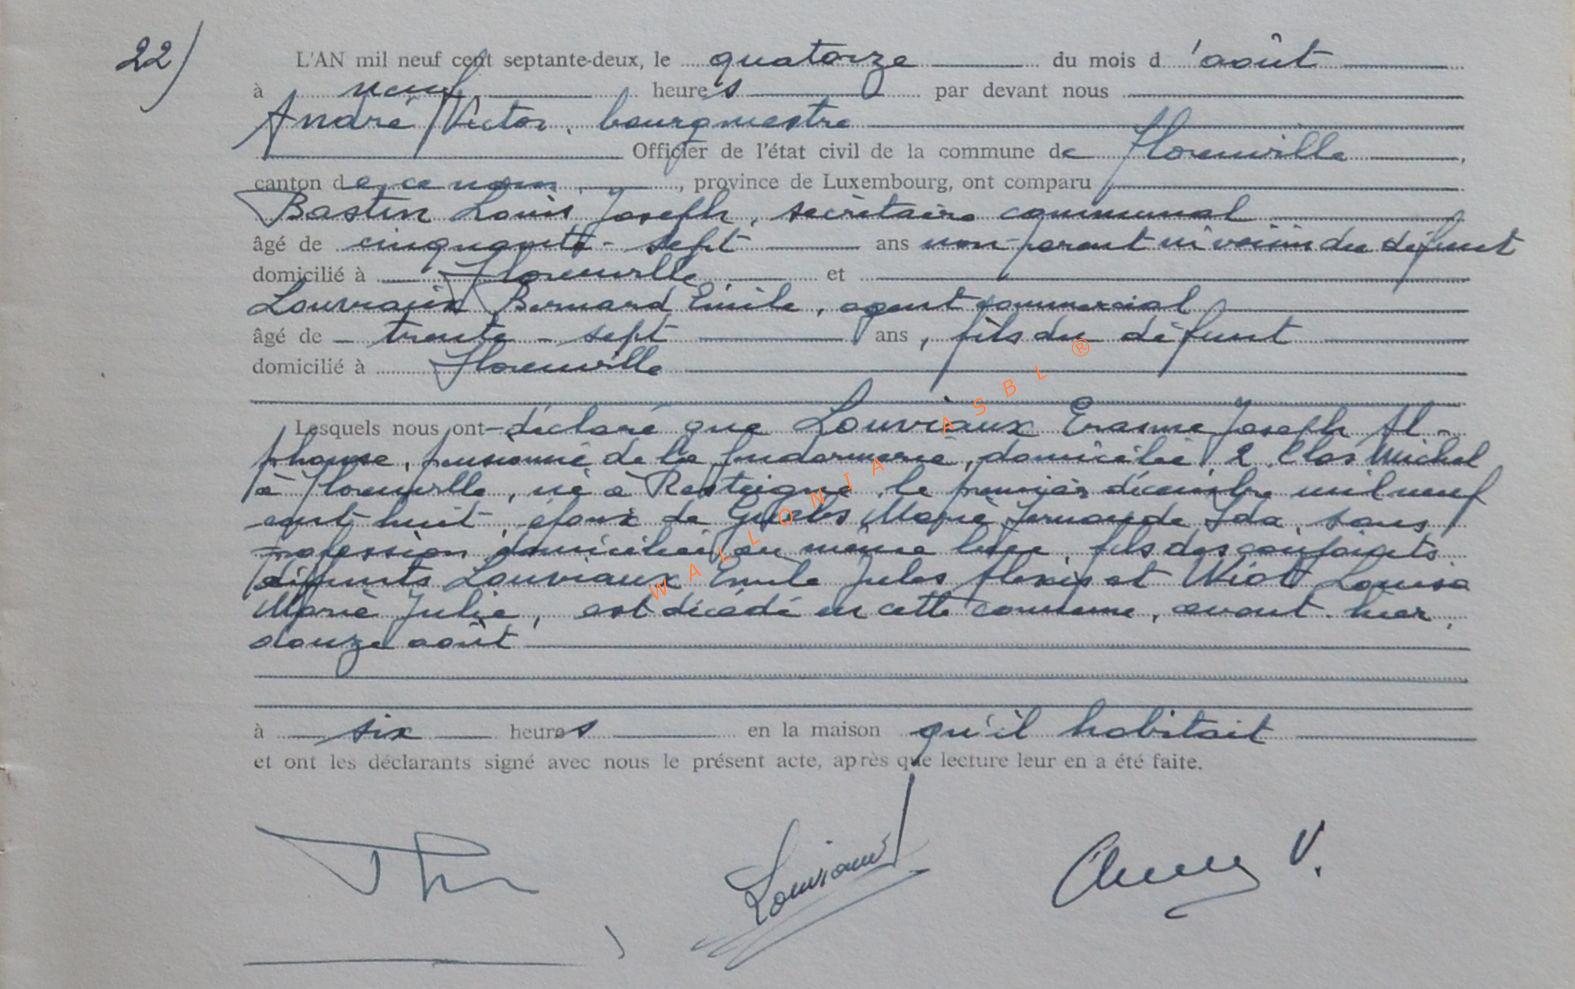 22)
L'AN mil neuf cent septante-deux, le quatorze du mois d'août
à neuf heures par devant nous
André Victor, bourgmestre
Officier de l'état civil de la commune de Florenville,
canton de ce nom, province de Luxembourg, ont comparu
Bastin Louis Joseph, secrétaire communal
âgé de cinquante-sept ans non-parent ni voisin du défunt
domicilié à Florenville et
Louviaux Bernard Emile, agent commercial
âgé de trente-sept ans, fils du défunt
domicilié à Florenville
Lesquels nous ont déclaré que Louviaux Erasme Joseph Al-
phonse, pensionné de la gendarmerie, domicilié 2, Clos Michel
à Florenville, né à Resteigne, le premier décembre mil neuf
cent huit, époux de Marie Fernande Ida, sans
profession, domiciliée au même lieu, fils des conjoints
défunts Louviaux Emile Jules Alexis et Louisa
Marie Julie, est décédé en cette commune, avant-hier,
douze août
à six heures en la maison qu'il habitait
et ont les déclarants signé avec nous le présent acte, après que lecture leur en a été faite.
Louviaux
V.
WALLONIA ASBL ®